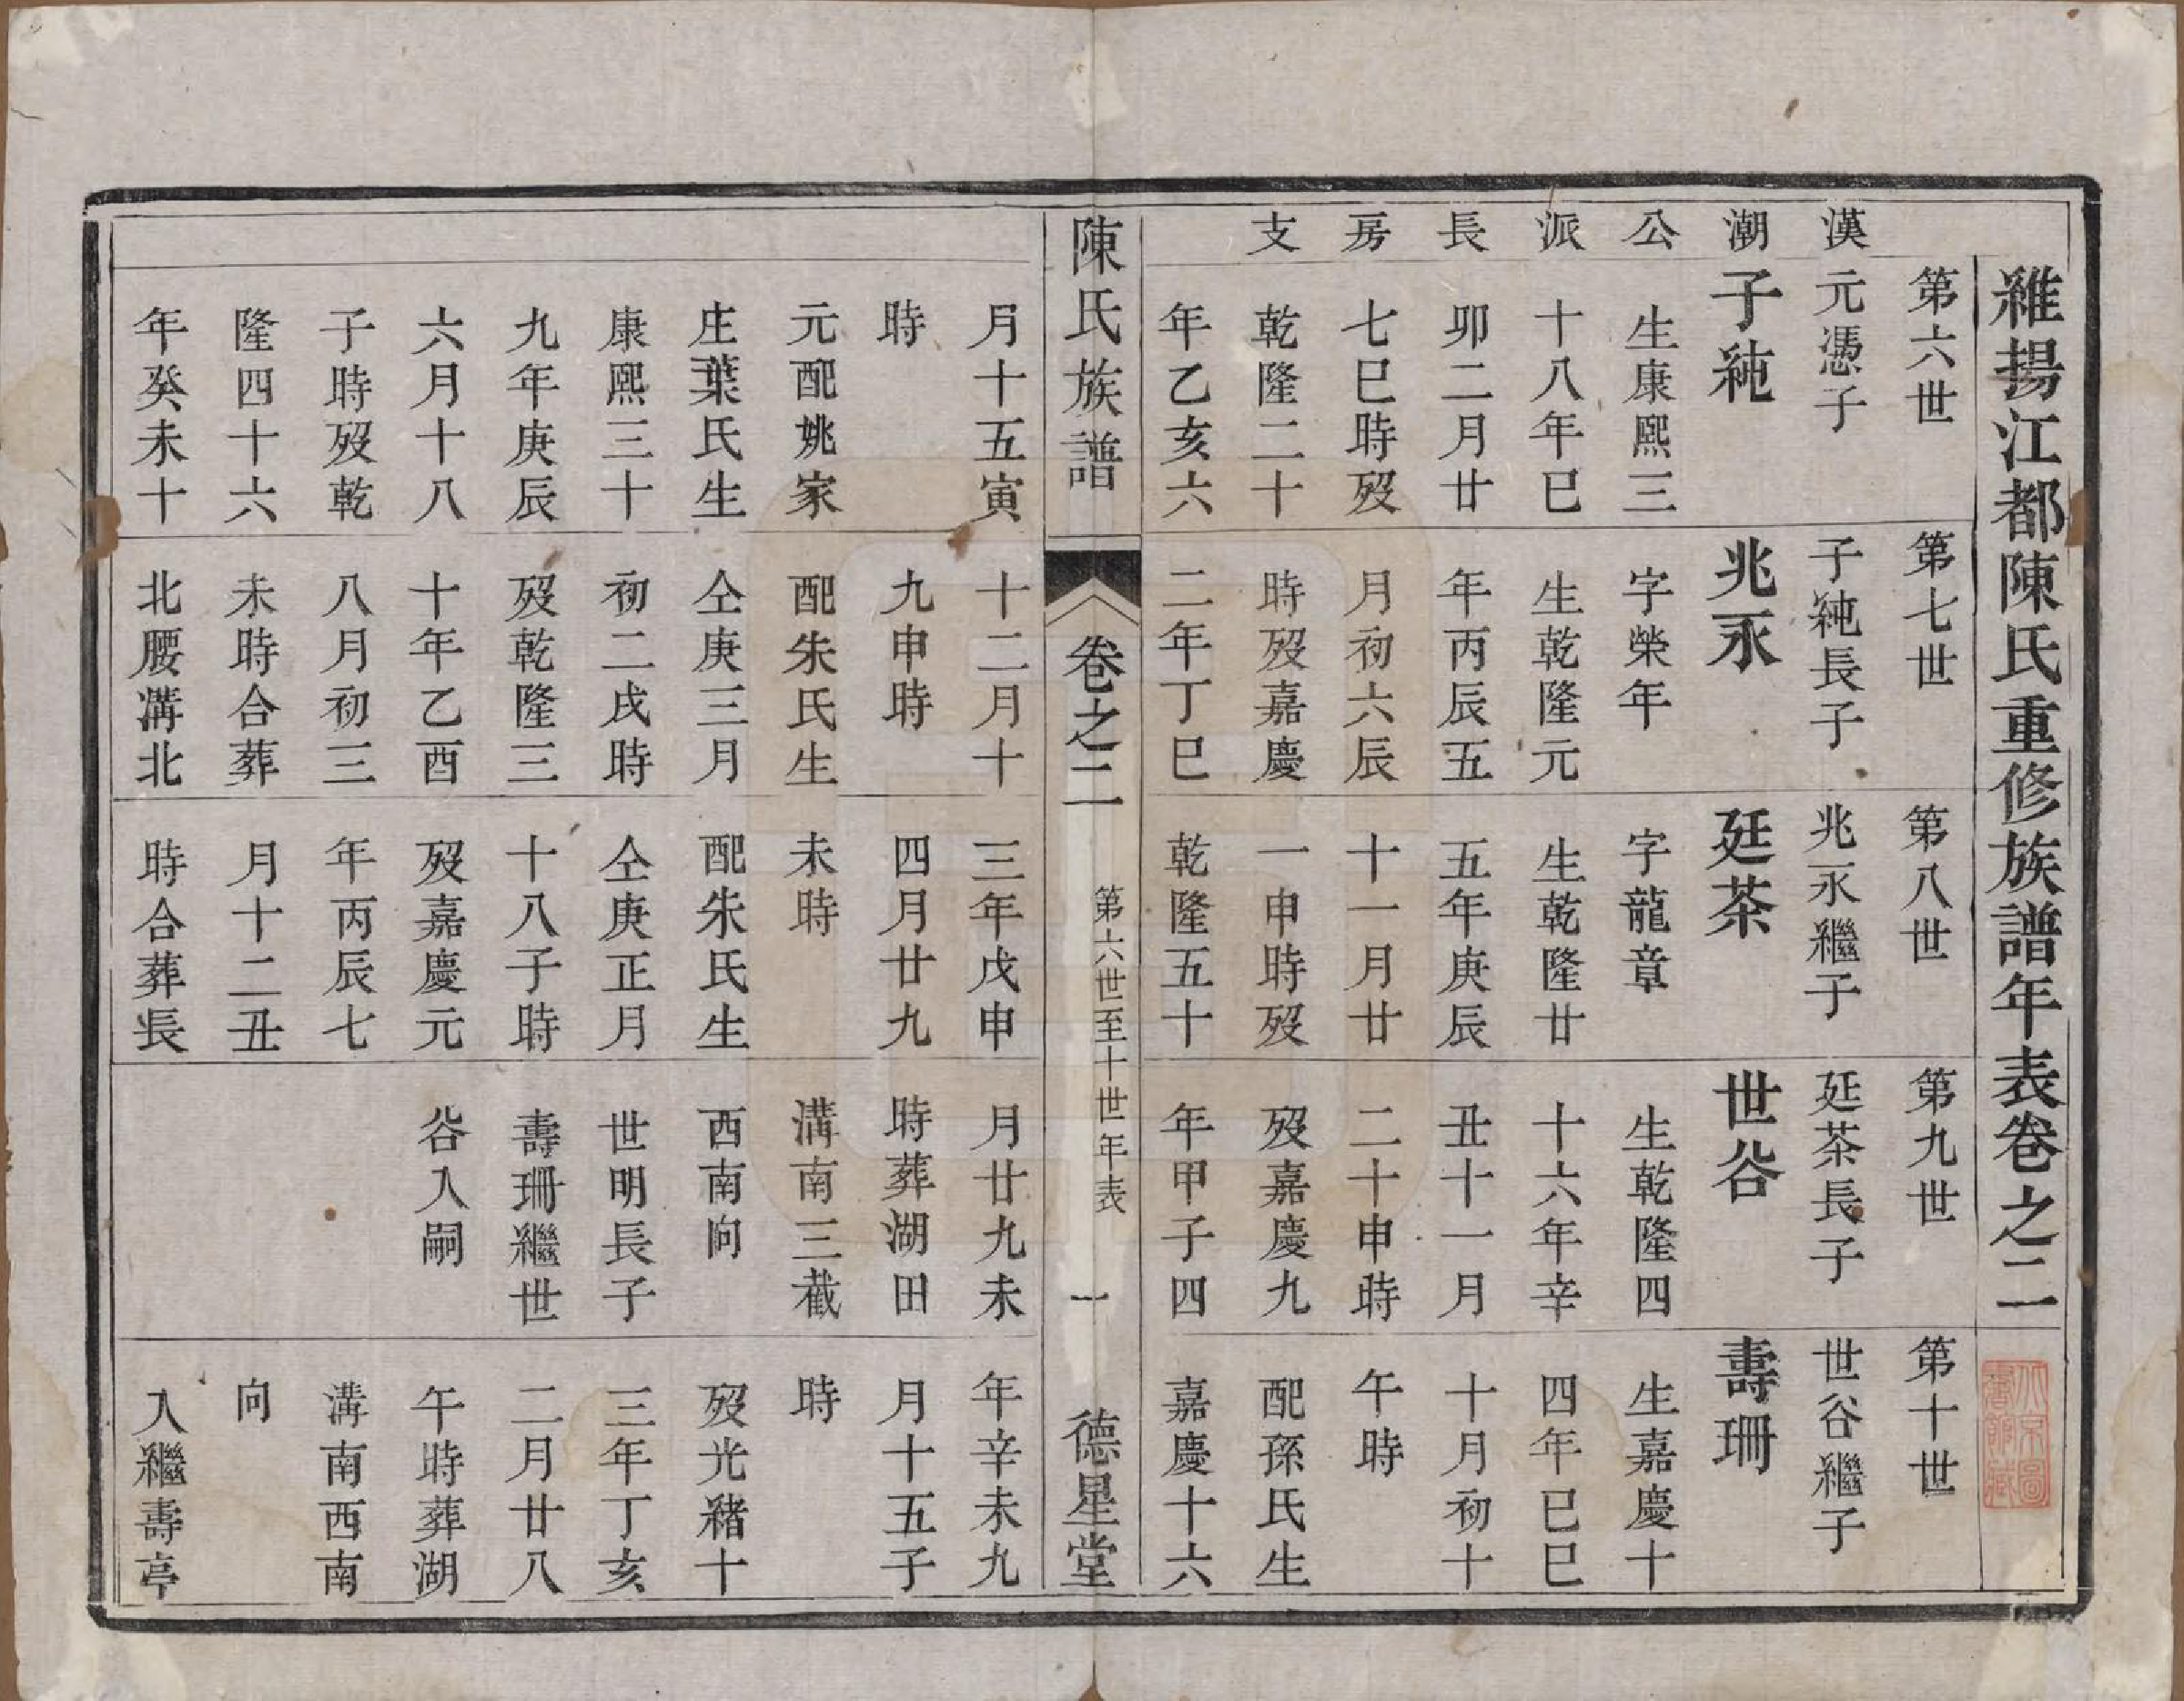 維揚江都陳氏重修族譜年表卷之二
漢潮公派長房支
第六世
元憑子
子純
生康熙三
十八年己
卯二月廿
七巳時歿
乾隆二十
年乙亥六
月十五寅
時
元配姚家
庄葉氏生
康熙三十
九年庚辰
六月十八
子時歿乾
隆四十六
年癸未十
第七世
子純長子
兆永
字榮年
生乾隆元
年丙辰五
月初六辰
時歿嘉慶
二年丁巳
十二月十
九申時
配朱氏生
仝庚三月
初二戌時
歿乾隆三
十年乙酉
八月初三
未時合葬
北腰溝北
第八世
兆永繼子
廷茶
字龍章
生乾隆廿
五年庚辰
十一月廿
一申時歿
乾隆五十
三年戊申
四月廿九
未時
配朱氏生
仝庚正月
十八子時
歿嘉慶元
年丙辰七
月十二丑
時合葬長
第九世
廷茶長子
世谷
生乾隆四
十六年辛
丑十一月
二十申時
歿嘉慶九
年甲子四
月廿九未
時葬湖田
溝南三截
西南向
世明長子
壽珊繼世
谷入嗣
第十世
世谷繼子
壽珊
生嘉慶十
四年己巳
十月初十
午時
配孫氏生
嘉慶十六
年辛未九
月十五子
時
歿光緒十
三年丁亥
二月廿八
午時葬湖
溝南西南
向
入繼壽亭
陳氏族譜
卷之二
第六世至十世年表
一
德星堂
北京圖書館藏